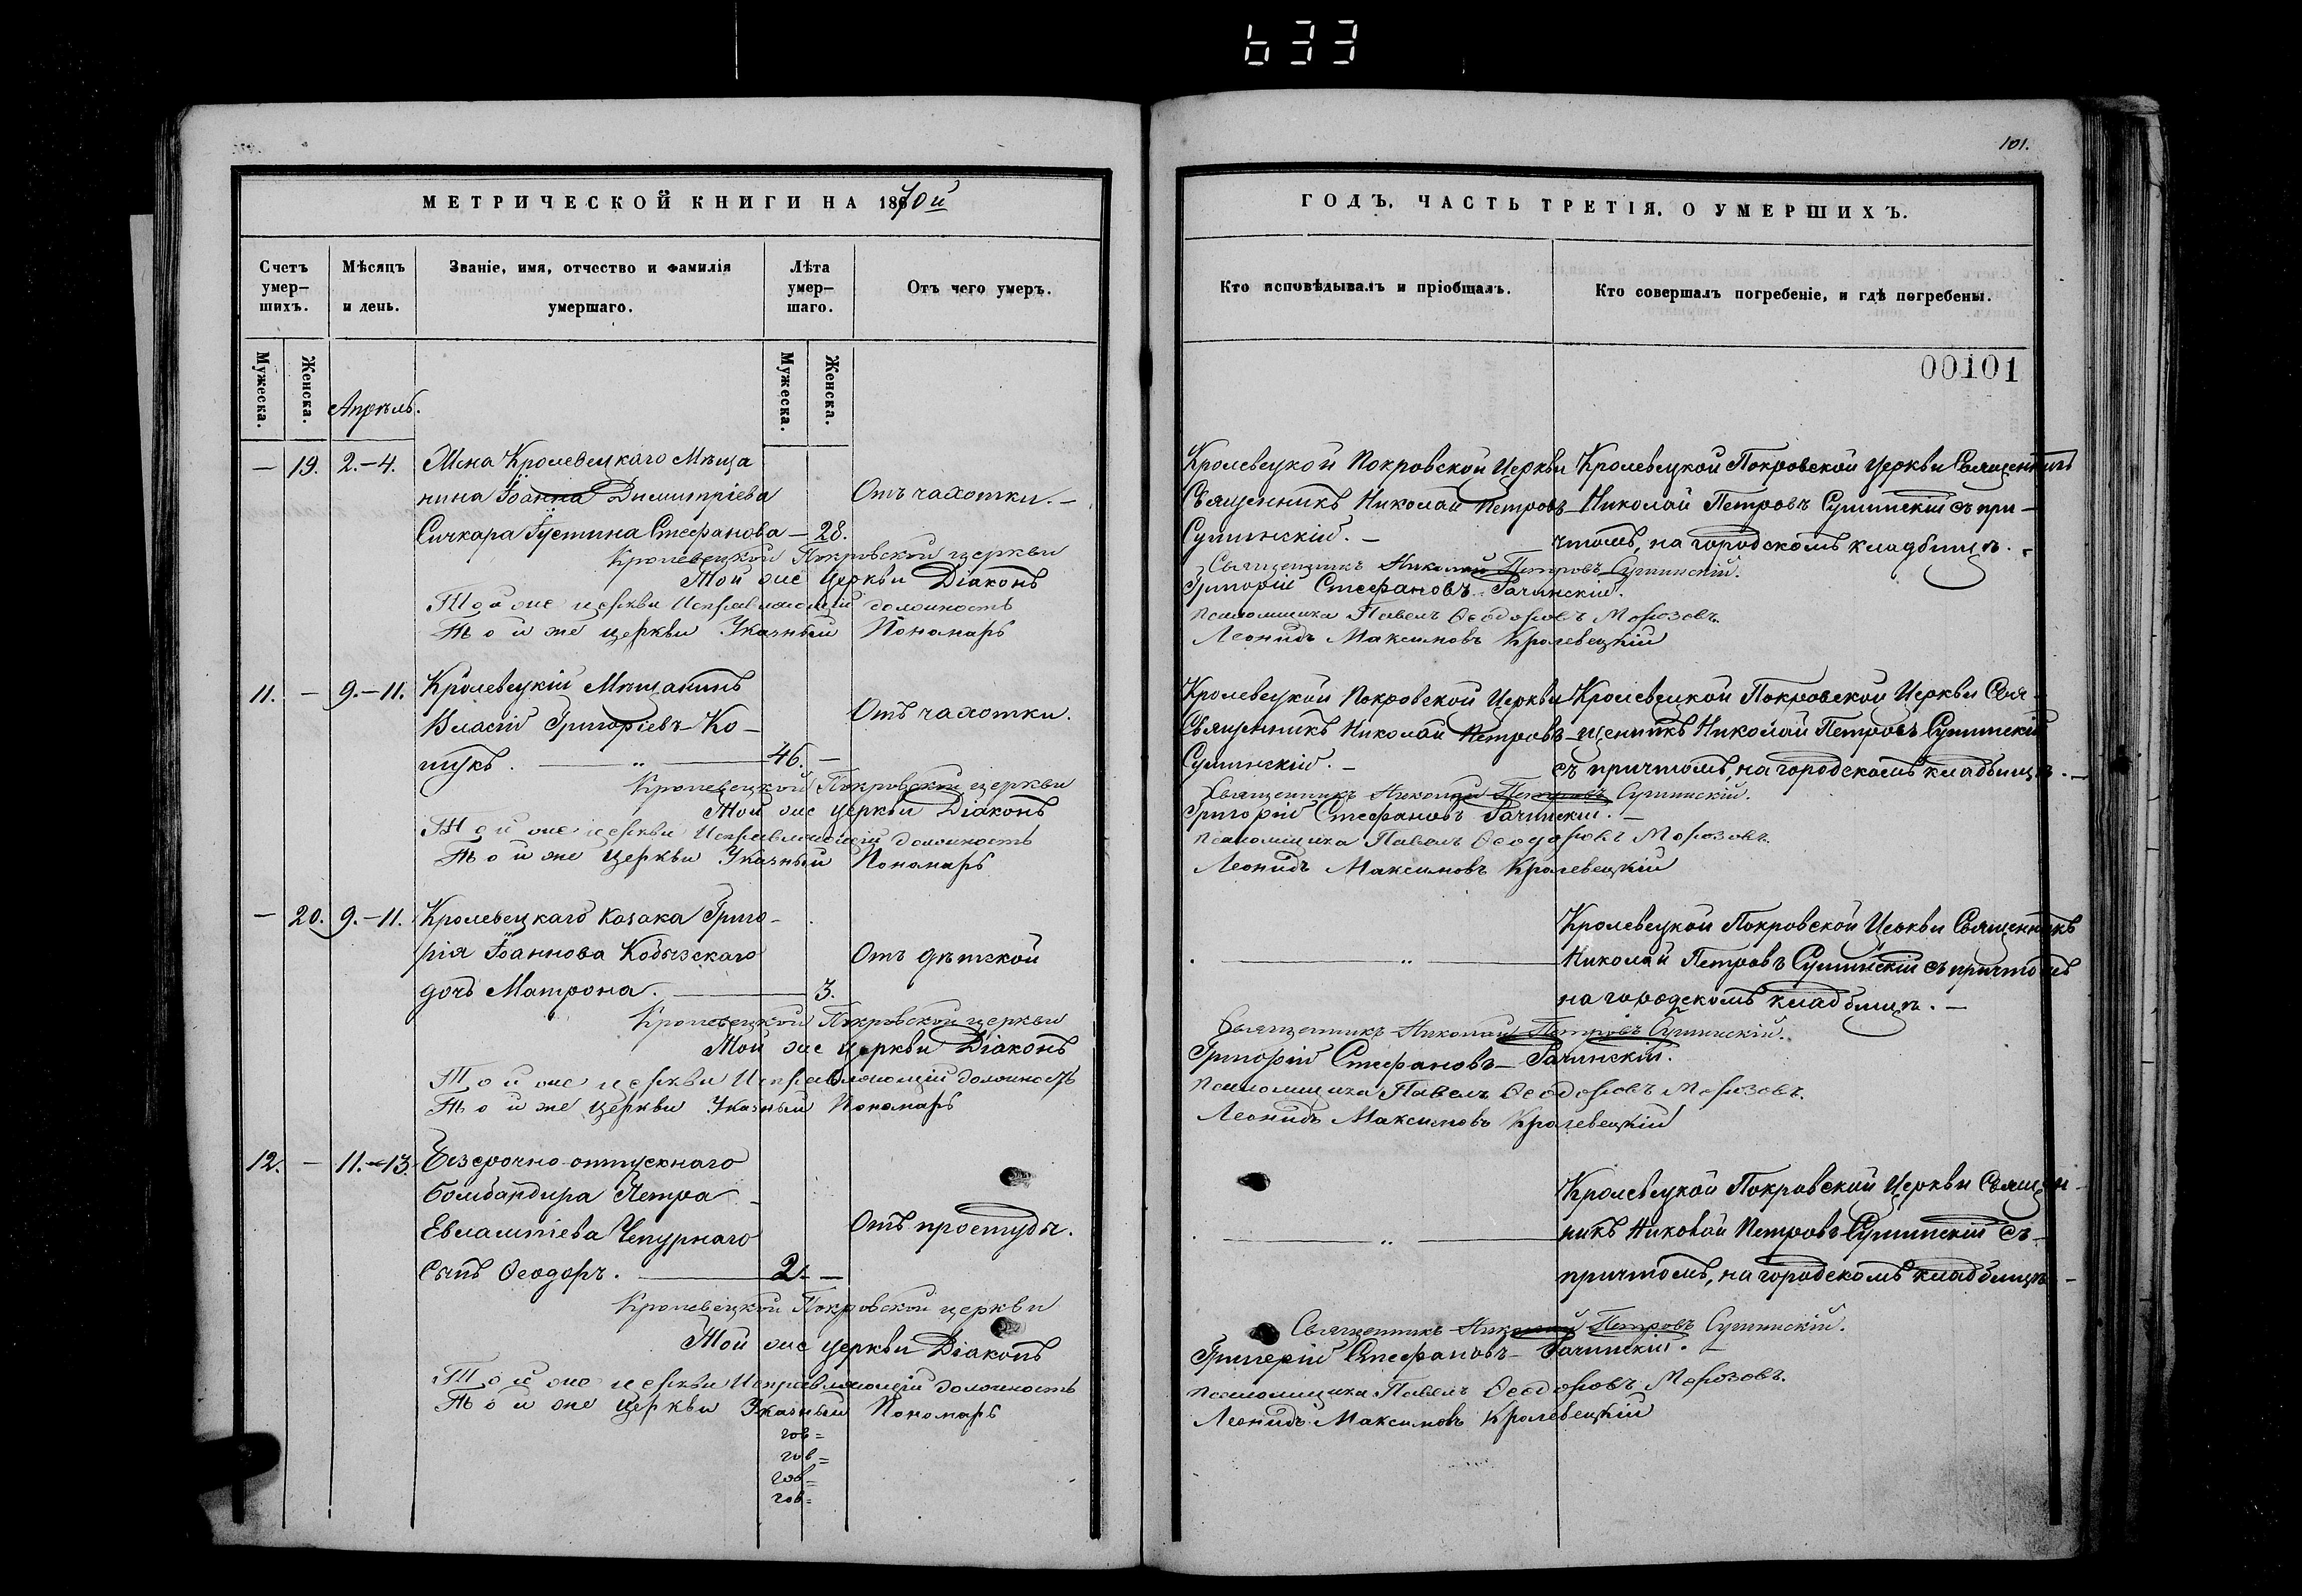 633
101.
МЕТРИЧЕСКОЙ КНИГИ НА 1870й
ГОДЪ. ЧАСТЬ ТРЕТІЯ. О УМЕРШИХЪ.
Счетъ умер–шихъ.
Мѣсяцъ и день.
Званіе, имя, отчество и фамилія умершаго.
Лѣта умер–шаго.
Отъ чего умеръ.
Кто исповѣдывалъ и пріобщалъ.
Кто совершалъ погребеніе, и гдѣ погребены.
Мужеска.
Женска.
Мужеска.
Женска.
00101
Апрѣль.
— 19. 2.–4.
Жена Кролевецкаго Мѣща
нина Іоанна Димитріева
Сичкара Іустина Стефанова — 28.
Отъ чахотки. —
Кролевецкой Покровской Церкви
Священникъ Николай Петровъ
Сушинскій. —
Кролевецкой Покровской Церкви Священникъ
Николай Петровъ Сушинскій съ при–
чтомъ, на городскомъ кладбищѣ.
Кролевецкой Покровской церкви Священникъ Николай Петровъ Сушинскій.
Той же Церкви Діаконъ Григорій Стефановъ Гачинскій.
Той же церкви Исправляющій должность псаломщика Павелъ Ѳеодоровъ Морозовъ.
Той же церкви Указный Пономарь Леонидъ Максимовъ Кролевецкій
11. — 9.–11.
Кролевецкій Мѣщанинъ
Власій Григоріевъ Ко–
шукъ. — „ — 46. —
Отъ чахотки.
Кролевецкой Покровской Церкви
Священникъ Николай Петровъ
Сушинскій. —
Кролевецкой Покровской Церкви Свя–
щеникъ Николай Петровъ Сушинскій
съ причтомъ, на городскомъ кладбищѣ. —
Кролевецкой Покровской церкви Священникъ Николай Петровъ Сушинскій.
Той же Церкви Діаконъ Григорій Стефановъ Гачинскій. —
Той же церкви Исправляющій должность псаломщика Павелъ Ѳеодоровъ Морозовъ.
Той же Церкви Указный Пономарь Леонидъ Максимовъ Кролевецкій
— 20. 9.–11.
Кролевецкаго Козака Григо–
рія Іоаннова Кобызскаго
дочь Матрона. — 3.
Отъ дѣтской
— „ —
Кролевецкой Покровской Церкви Священникъ
Николай Петровъ Сушинскій съ причтомъ
на городскомъ кладбищѣ. —
Кролевецкой Покровской церкви Священникъ Николай Петровъ Сушинскій.
Той же Церкви Діаконъ Григорій Стефановъ Гачинскій.
Той же церкви Исправляющій должность псаломщика Павелъ Ѳеодоровъ Морозовъ.
Той же Церкви Указный Пономарь Леонидъ Максимовъ Кролевецкій
12. — 11.–13.
Безсрочно-отпускнаго
бомбандира Петра
Евлампіева Чепурнаго
Сынъ Ѳеодоръ. — 2. —
Отъ простуды.
— „ —
Кролевецкой Покровской Церкви Священ–
никъ Николай Петровъ Сушинскій съ
причтомъ, на городскомъ кладбищѣ —
Кролевецкой Покровской церкви Священникъ Николай Петровъ Сушинскій.
Той же Церкви Діаконъ Григорій Стефановъ Гачинскій.
Той же церкви Исправляющій должность псаломщика Павелъ Ѳеодоровъ Морозовъ.
Той же Церкви Указный Пономарь Леонидъ Максимовъ Кролевецкій
гов=
гов=
гов=
гов=